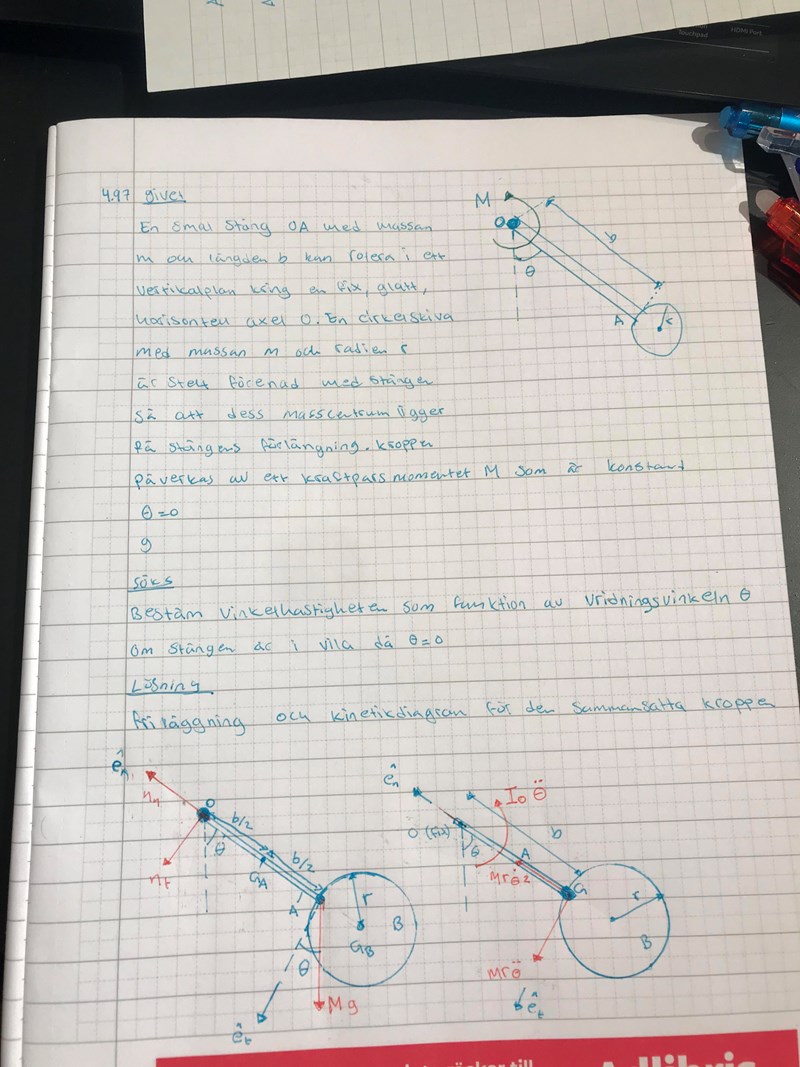 Touchpad
HDMI Port
4.97 given
M
O
b
θ
A
r
En smal stång OA med massan
m och längden b kan rotera i ett
vertikalplan kring en fix, glatt,
horisontell axel O. En cirkelskiva
med massan m och radien r
är stelt förenad med stången
så att dess masscentrum ligger
på stångens förlängning. kroppen
påverkas av ett kraftparsmomentet M som är konstant
θ=0
g
Söks
Bestäm vinkelhastigheten som funktion av vridningsvinkeln θ
om stången är i vila då θ=0
Lösning
friläggning och kinetikdiagram för den sammansatta kroppen
ên
nn
O
b/2
θ
nt
GA
b/2
A
r
GB
B
θ
Mg
êt
ên
I₀ θ̈
O (fix)
b
θ
A
mrθ̇2
G
r
B
mrθ̈
êt
Adlibris